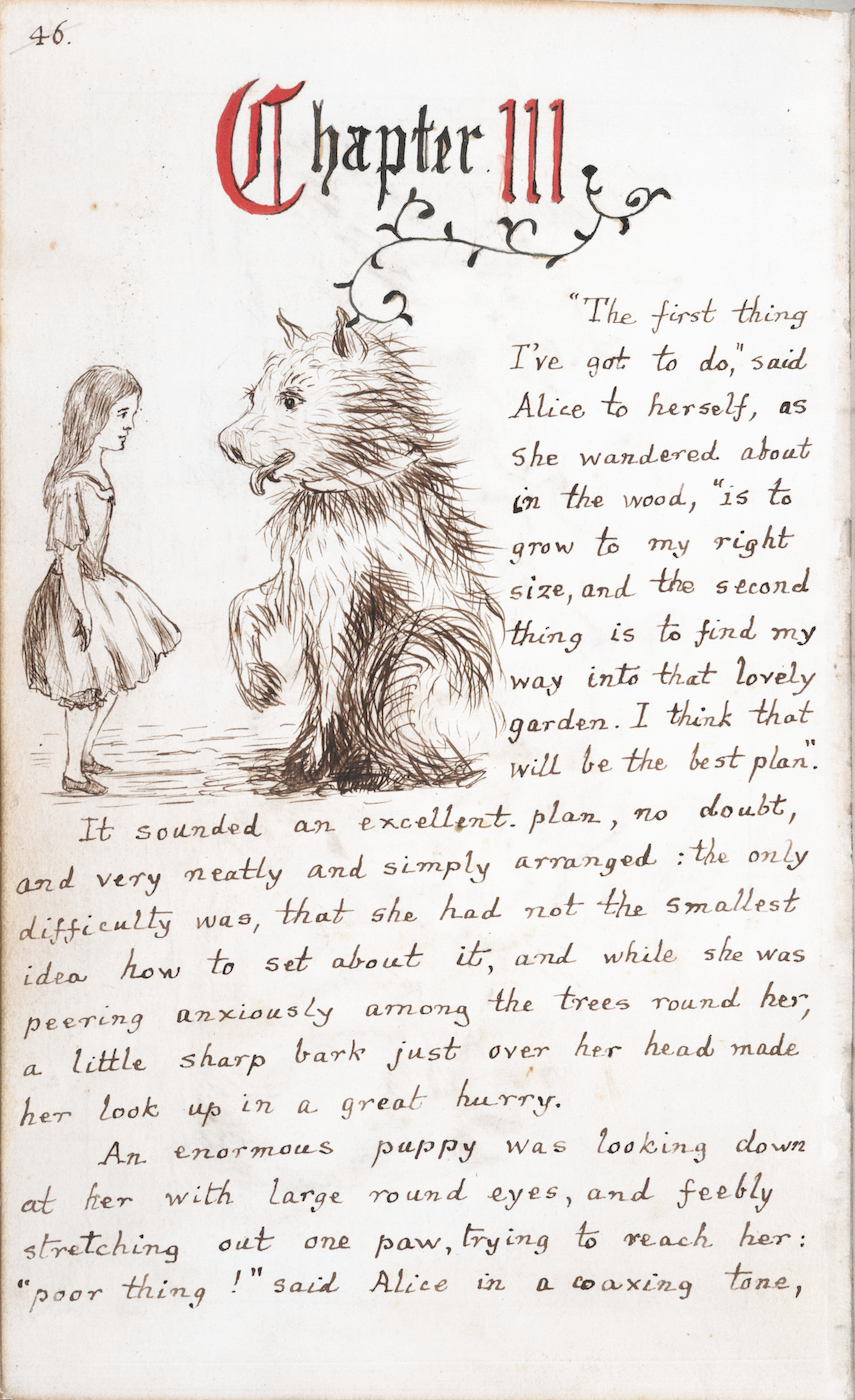 46.
Chapter III
"The first thing
I've got to do," said
Alice to herself, as
she wandered about
in the wood, "is to
grow to my right
size, and the second
thing is to find my
way into that lovely
garden. I think that
will be the best plan".
It sounded an excellent plan, no doubt,
and very neatly and simply arranged : the only
difficulty was, that she had not the smallest
idea how to set about it, and while she was
peering anxiously among the trees round her,
a little sharp bark just over her head made
her look up in a great hurry.
An enormous puppy was looking down
at her with large round eyes, and feebly
stretching out one paw, trying to reach her :
"poor thing !" said Alice in a coaxing tone,